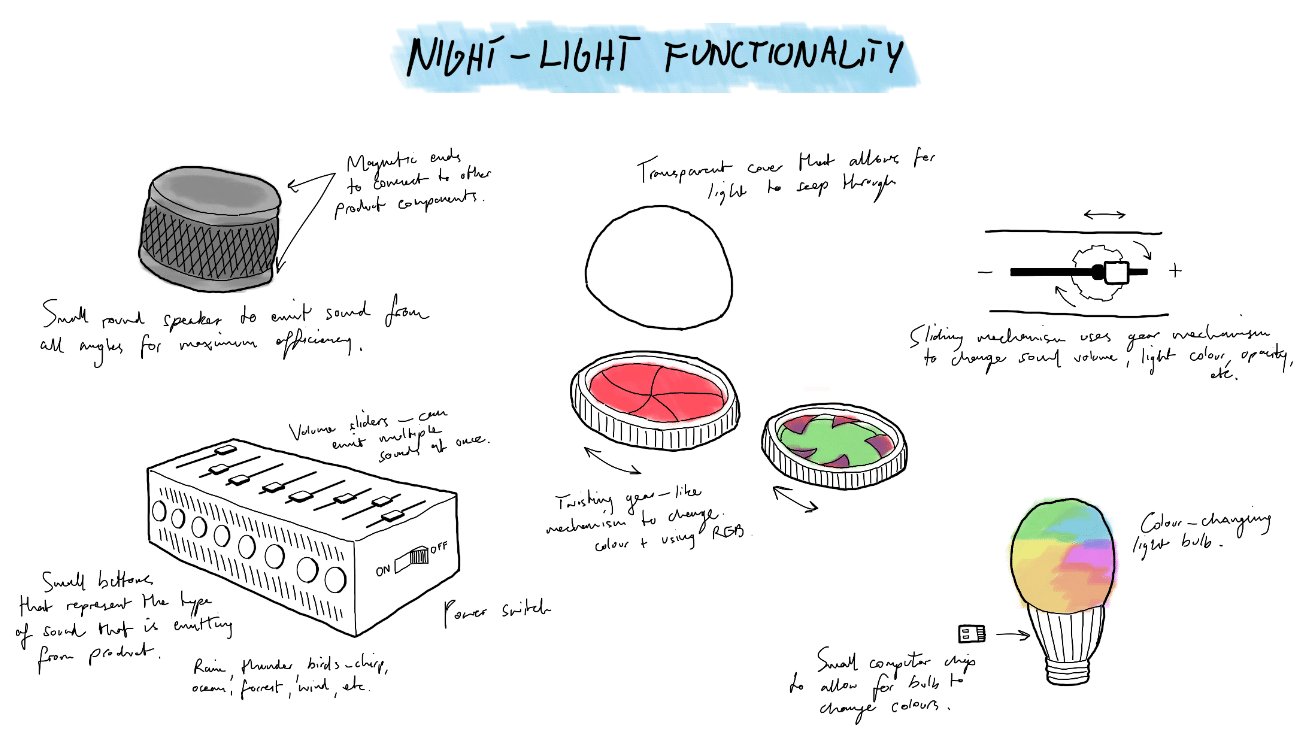 NIGHT-LIGHT FUNCTIONALITY
Magnetic ends
to connect to other
product components.
Small round speaker to emit sound from
all angles for maximum efficiency.
Transparent cover that allows for
light to seep through
- +
Sliding mechanism uses gear mechanism
to change sound volume, light colour, opacity,
etc.
Volume sliders - can
emit multiple
sounds at once.
ON OFF
Power switch
Small buttons
that represent the type
of sound that is emitting
from product.
Rain, thunder, birds-chirp,
ocean, forrest, wind, etc.
Twisting gear-like
mechanism to change
colour + using RGB.
Colour-changing
light bulb.
Small computer chip
to allow for bulb to
change colours.